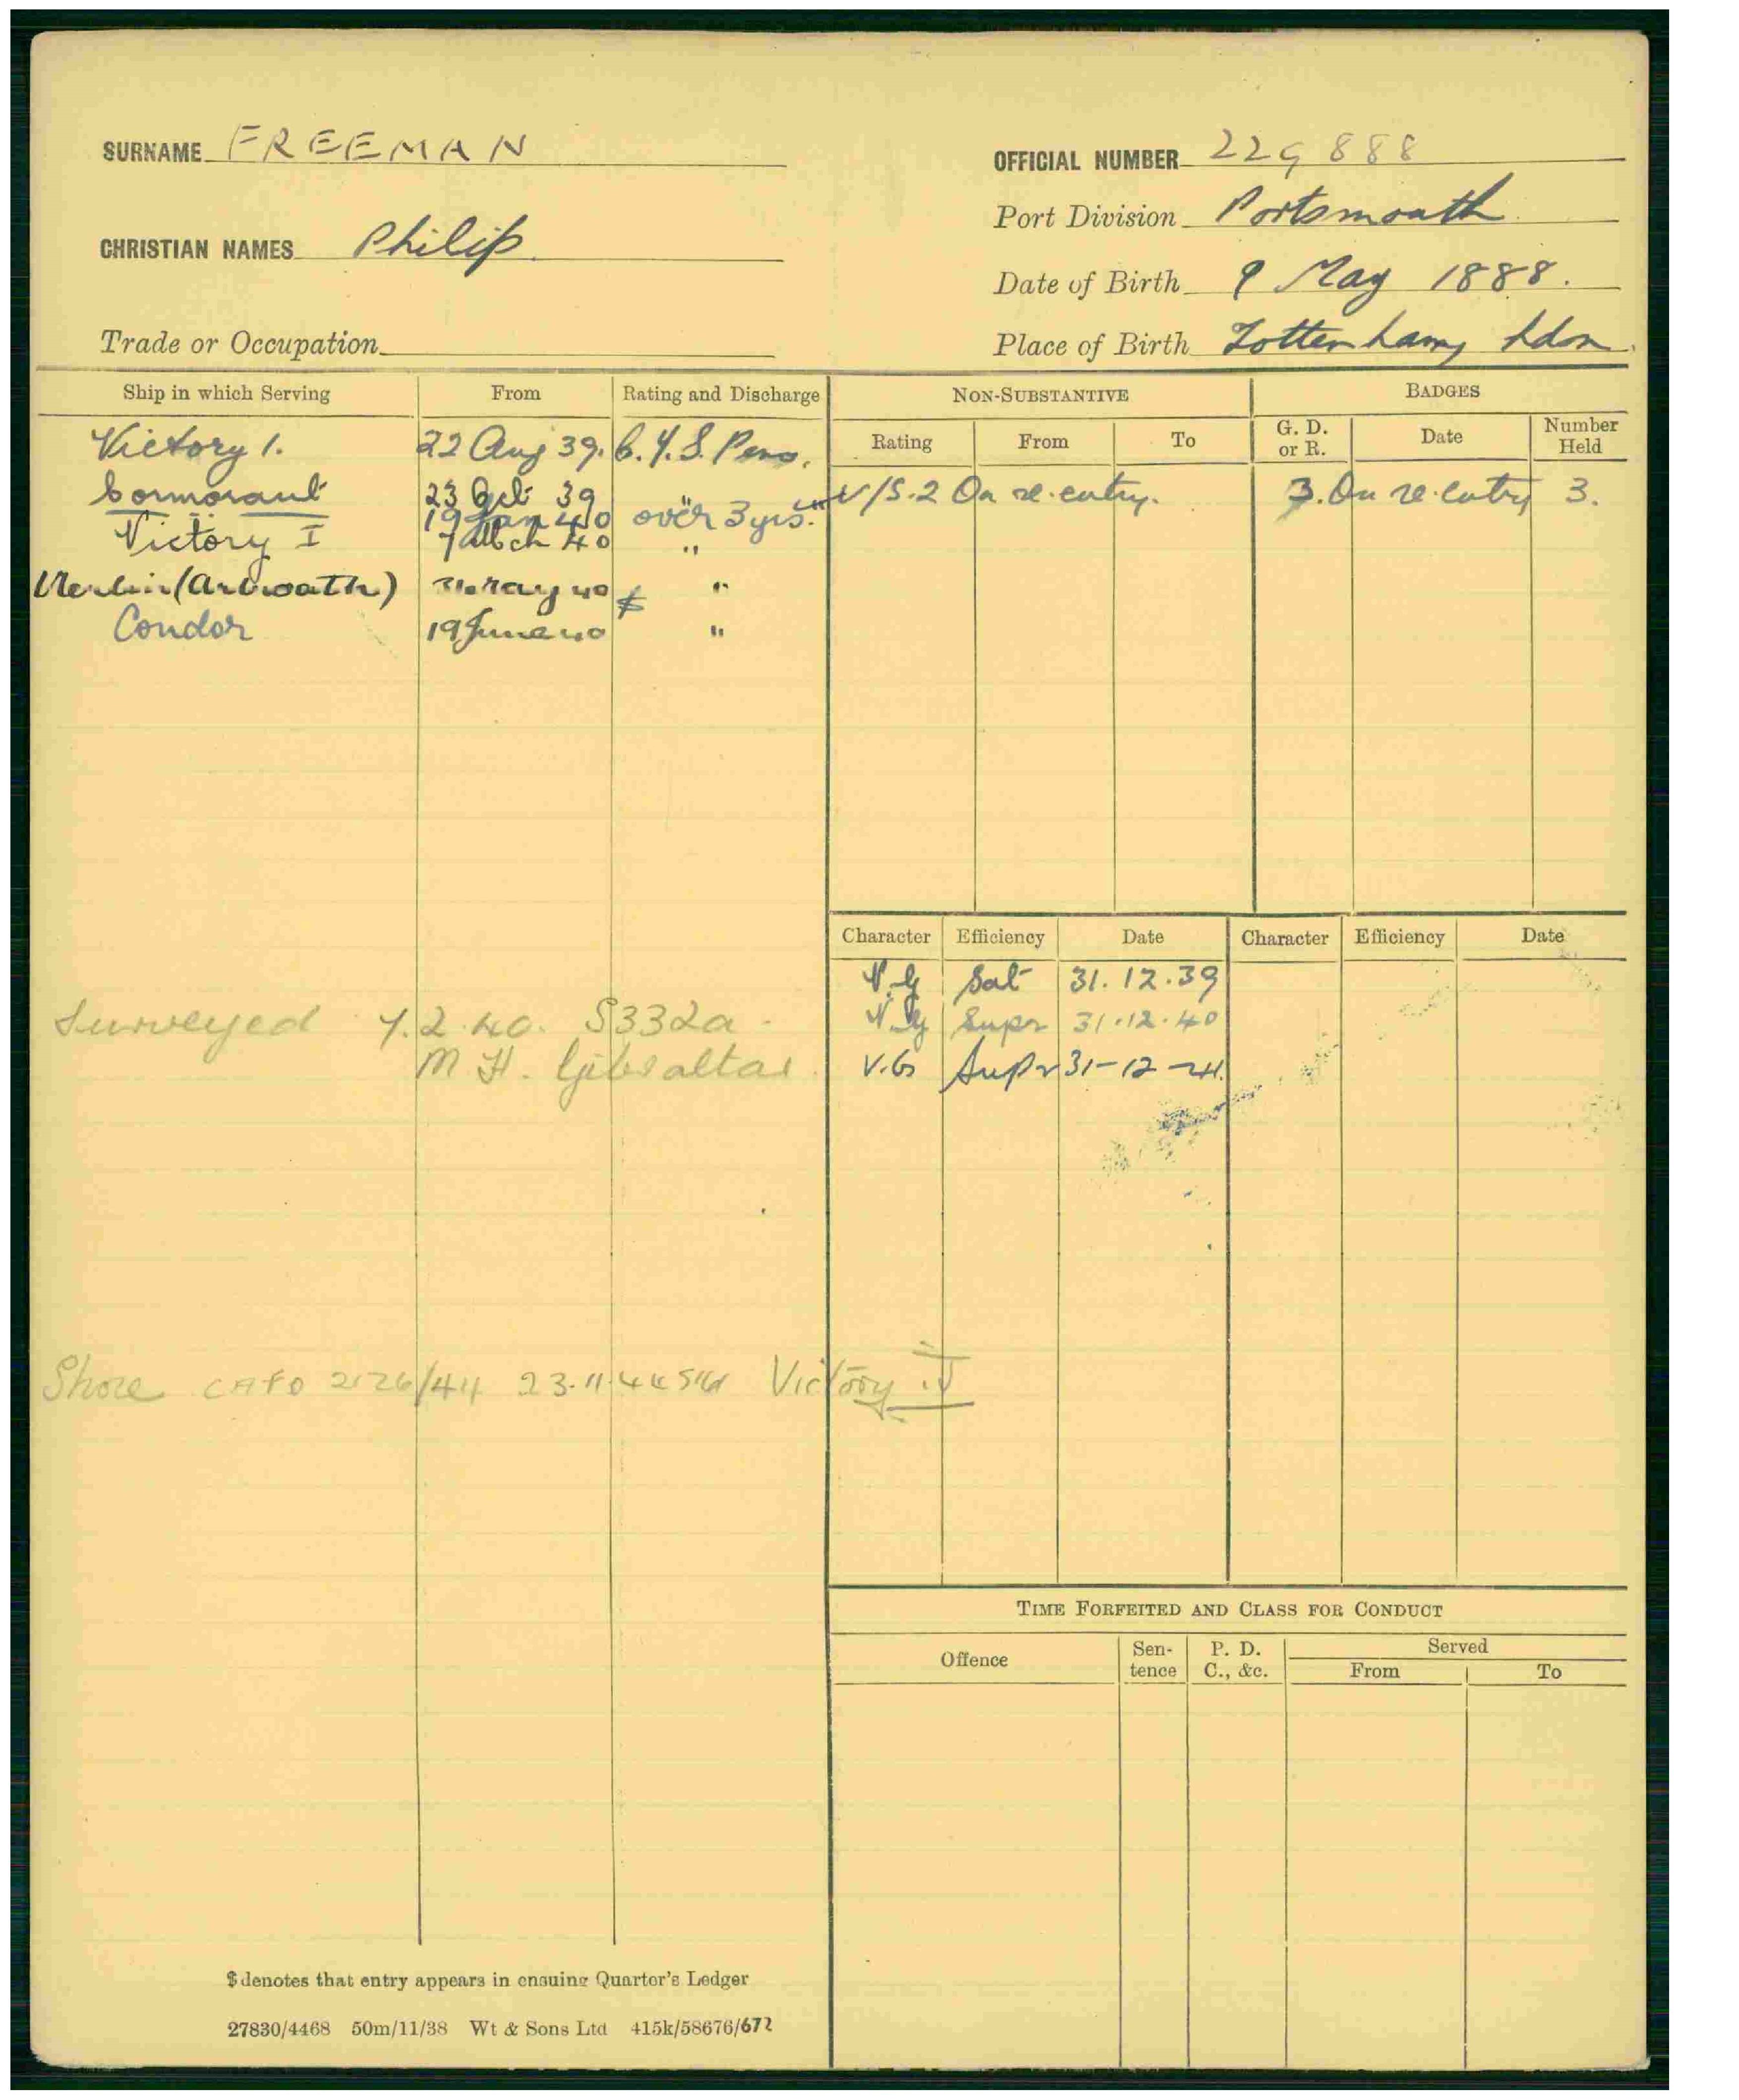 SURNAME FREEMAN
OFFICIAL NUMBER 229888
Port Division Portsmouth
CHRISTIAN NAMES Philip
Date of Birth 9 May 1888.
Trade or Occupation
Place of Birth Tottenham, Ldon.
Ship in which Serving From Rating and Discharge
NON-SUBSTANTIVE BADGES
Rating From To G. D. or R. Date Number Held
Victory 1. 22 Aug 39. C.Y.S. Pens.
Cormorant 23 Oct 39
V/S.2 On re.entry. 3. On re.entry 3.
19 Jan 40 over 3 yrs.
Victory I 7 Mch 40 "
Merlin (Arbroath) May 40 $ "
Condor 19 June 40 "
Character Efficiency Date Character Efficiency Date
V.G Sat 31.12.39
V.G Supr 31.12.40
V.G Supr 31-12-41.
Surveyed 7.2.40. S332a.
M H. Gibraltar
Shore CAFO 2126/44 23.11.44 Victory
TIME FORFEITED AND CLASS FOR CONDUCT
Offence Sen-tence P. D. C., &c. Served
From To
$ denotes that entry appears in ensuing Quarter's Ledger
27830/4468 50m/11/38 Wt & Sons Ltd 415k/58676/672